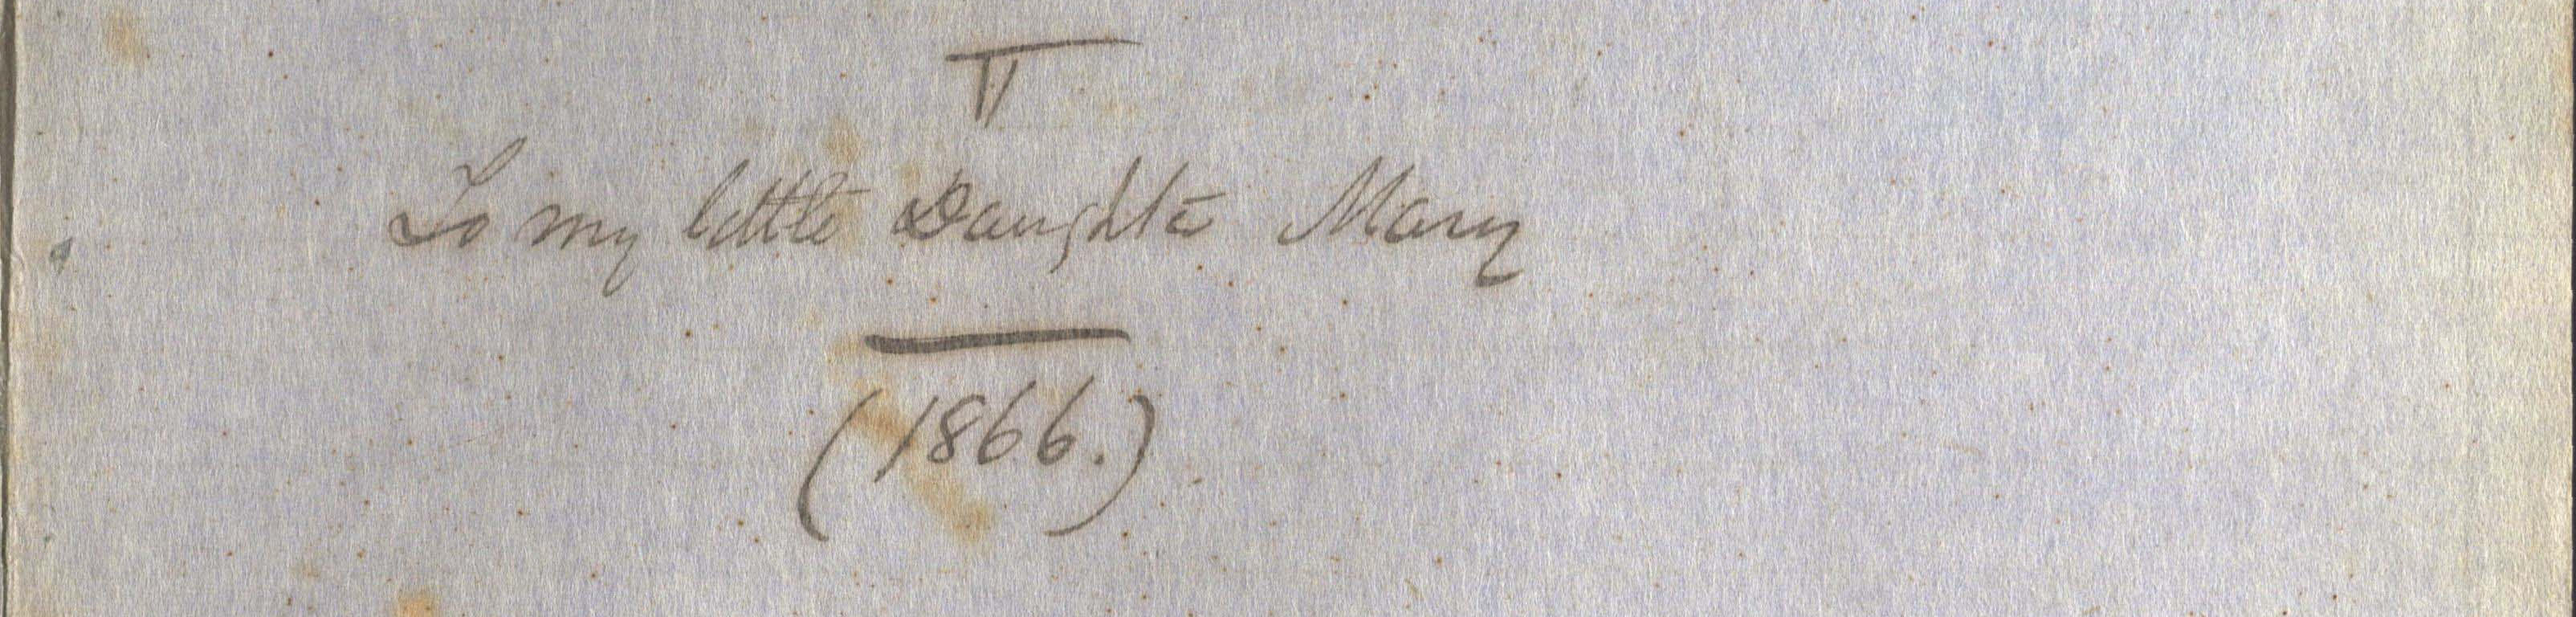 II
To my little Daughter Mary
(1866.)